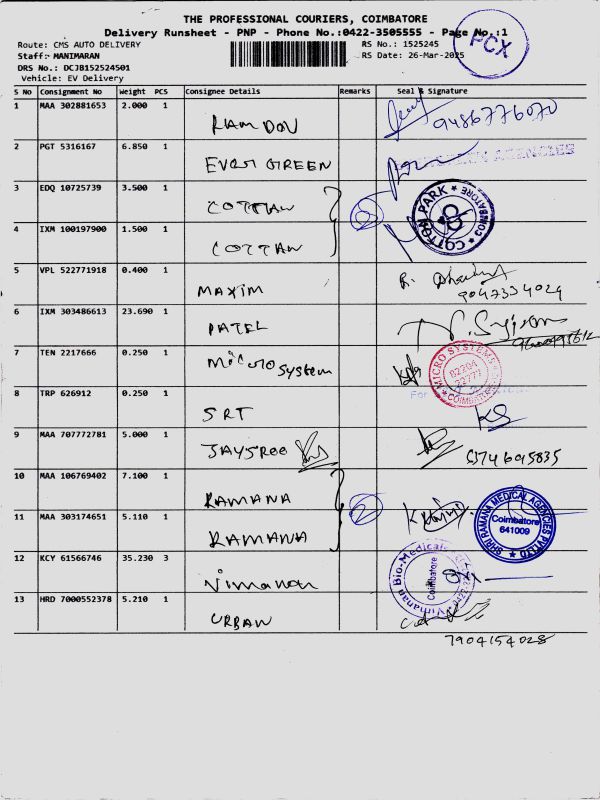 THE PROFESSIONAL COURIERS, COIMBATORE
Delivery Runsheet - PNP - Phone No.:0422-3505555 - Page No.:1
PCX
Route: CMS AUTO DELIVERY
RS No.: 1525245
Staff: MANIMARAN
RS Date: 26-Mar-2025
DRS No.: DCJB152524501
Vehicle: EV Delivery
S No Consignment No Weight PCS Consignee Details Remarks Seal & Signature
1 MAA 302881653 2.000 1 RAMDOV 9486776070
2 PGT 5316167 6.850 1 EVER GREEN AGENCIES
3 EDQ 10725739 3.500 1 COTTAN 2 COTTON PARK COIMBATORE
4 IXM 100197900 1.500 1 COTTAN
5 VPL 522771918 0.400 1 MAXIM 9047334024
6 IXM 303486613 23.690 1 PATEL
7 TEN 2217666 0.250 1 Micro System MICRO SYSTEMS COIMBATORE
For
8 TRP 626912 0.250 1 SRT KS
9 MAA 707772781 5.000 1 JAYSREE
10 MAA 106769402 7.100 1 RAMANA 2 SHRI RAMANA MEDICAL AGENCIES PVT LTD Coimbatore 641009
11 MAA 303174651 5.110 1 RAMANA
12 KCY 61566746 35.230 3 Vimanan Vimanan Bio-Medical Coimbatore
13 HRD 7000552378 5.210 1 URBAN
7904154028